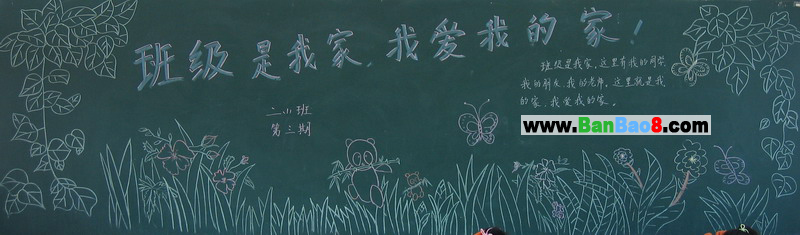 班级是我家,我爱我的家!
班级是我家,这里有我的同学
我的朋友,我的老师。这里就是我
的家,我爱我的家。
二小班
第三期
www.BanBao8.com